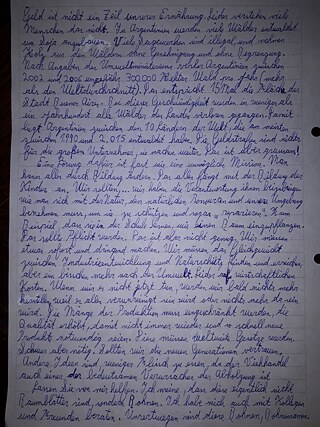 Geld ist nicht ein Teil unserer Ernährung. Leider verstehen viele
Menschen das nicht. In Argentinien werden viele Wälder entwaldet
um Soja anzubauen. Viele Sägewerke sind illegal und nehmen
Holz aus den Wäldern ohne Genehmigung und ohne Begrenzung.
Nach Angaben des Umweltministeriums verlor Argentinien zwischen
2002 und 2006 ungefähr 300.000 Hektar Wald pro Jahr (mehr
als der Weltdurchschnitt). Das entspricht 15 Mal die Fläche der
Stadt Buenos Aires. Bei dieser Geschwindigkeit werden in weniger als
ein Jahrhundert alle Wälder des Landes verloren gegangen. Damit
liegt Argentinien zwischen den 10 Ländern der Welt, die am meisten
zwischen 1990 und 2.015 entwaldet haben. Die Geldstrafen sind nichts
für die großen Unternehmen, so machen weiter. Das ist aber grausam!
Eine Lösung dafür ist fast wie eine unmögliche Mission. Man
kann alles durch Bildung ändern. Das alles fängt mit der Bildung des
Kindes an. Wir sollten
wie man sich mit der Natur, den natürlichen Ressourcen und unsere Umgebung
benehmen muss, um sie zu schützen und sogar "reparieren". Zum
Beispiel, dass in der Schule lernen, wie seinen Baum einzupflanzen.
Das sollte Pflicht werden. Das ist aber nicht genug. Wir müssen
etwas sofort und dringend machen. Wir müssen das Gleichgewicht
zwischen Industrieentwicklung und Naturschutz finden und erreichen,
aber ein bisschen mehr nach der Umwelt, leider auf wirtschaftlichen
Kosten. Wenn wir es nicht jetzt tun, werden wir bald nichts mehr
herstellen, weil es alles verunreinigt sein wird oder nichts mehr da sein
wird. Die Menge der Produktion muss eingeschränkt werden, die
Qualität erhöht, damit nicht immer wieder und so schnell neue
Produkte notwendig seien. Hier müssen weltweite Gesetze werden.
Schwer aber nötig. Sollten wir die neuen Generationen vertrauen.
Andere Ideen sind, weniger Fleisch zu essen, da die Viehhandel
auch einer der bedeutsamen Verursacher der Abholzung ist.
Lassen Sie von mir helfen. Ich meine, dass diese eigentlich nicht
Raumblätter sind, sondern Bohnen. Ich habe mich auch mit Kollegen
und Freunden beraten. Unsertwegen sind diese Bohnen, Bohnensamen.